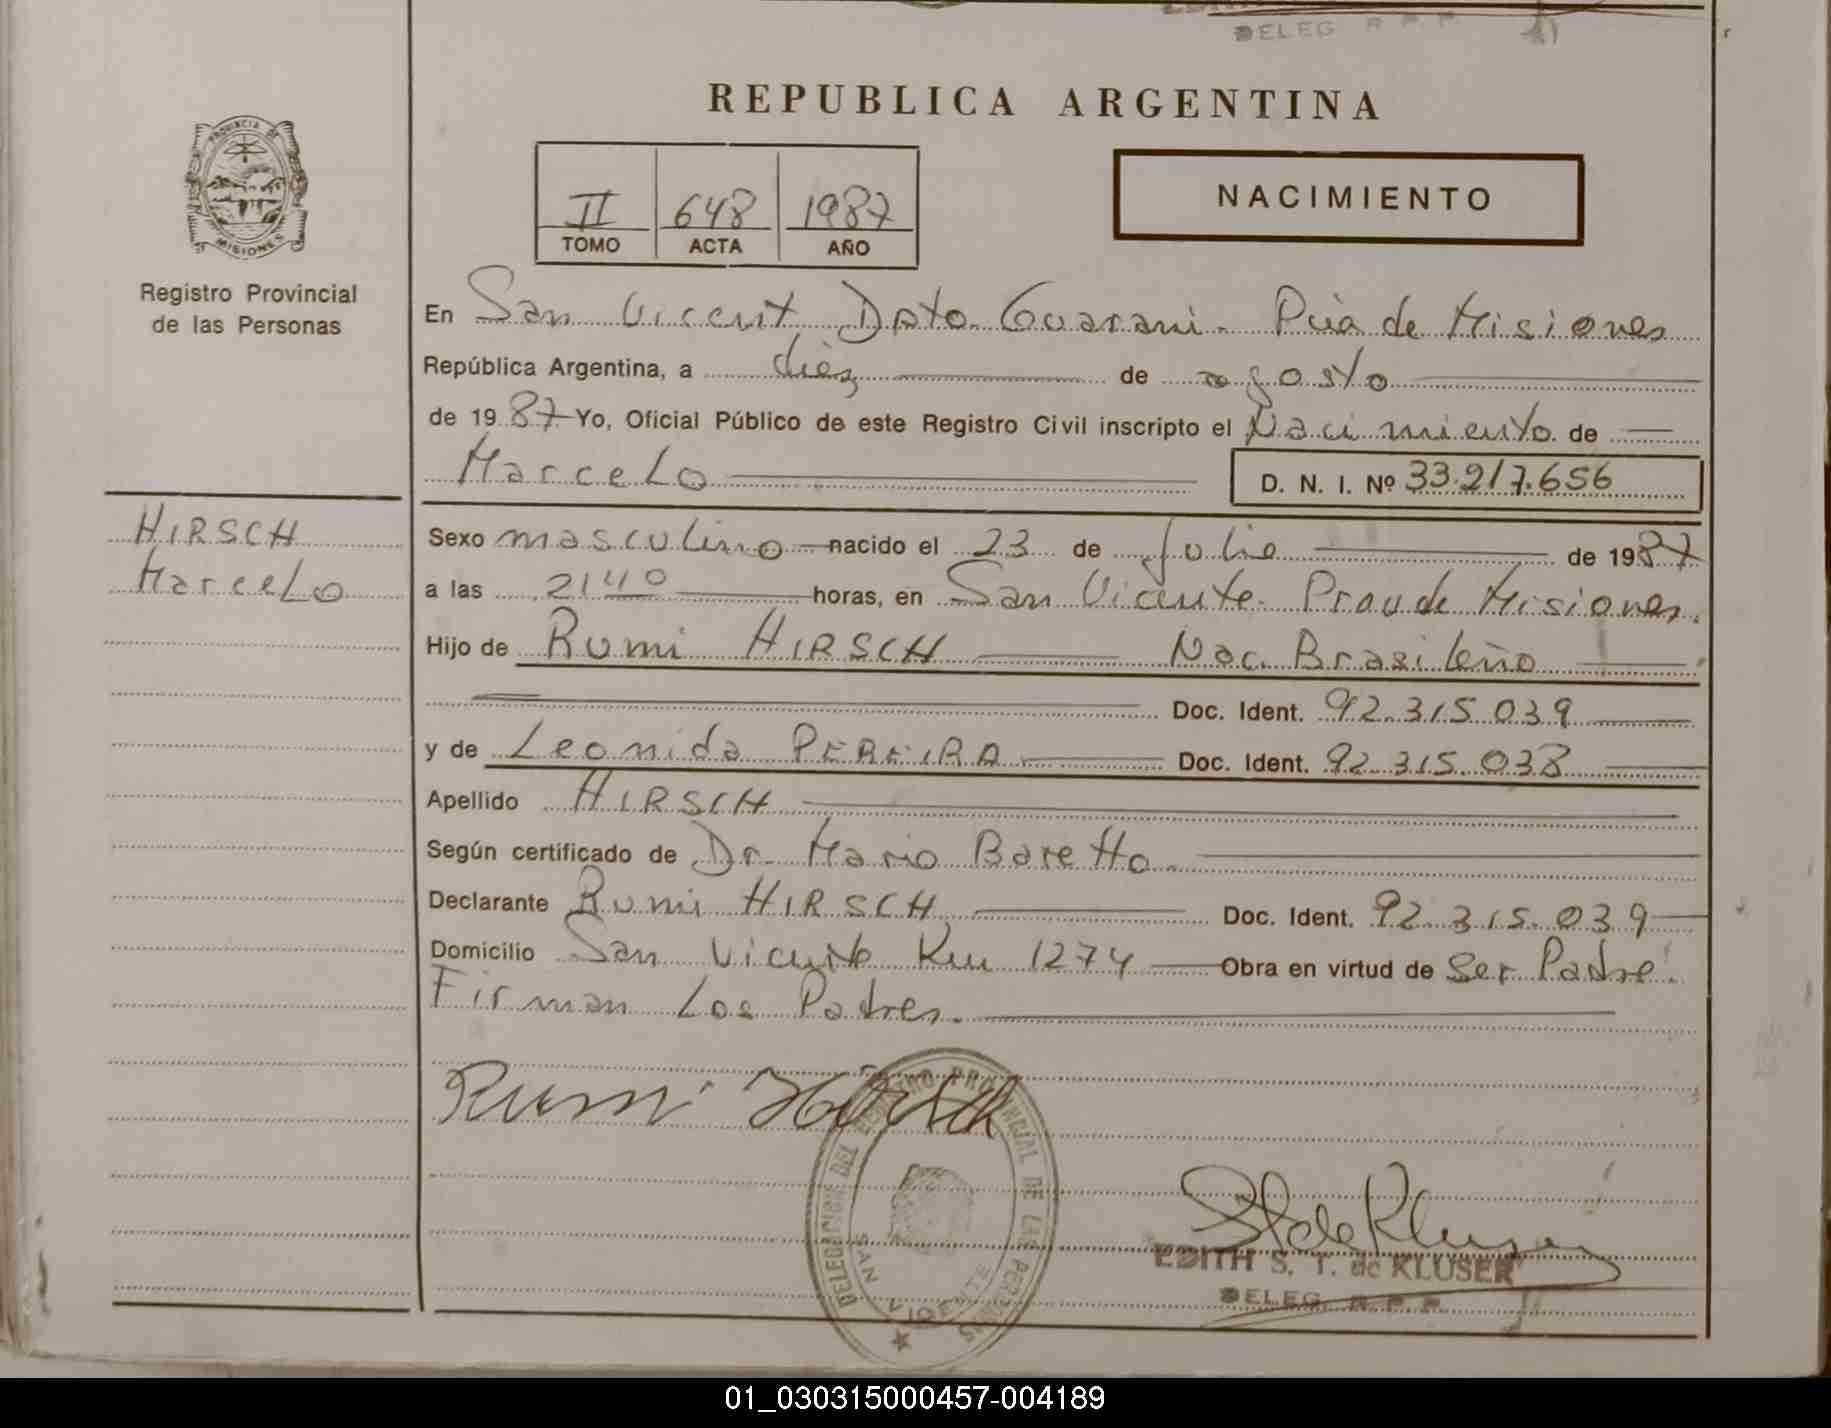 DELEG. R. P. P.
REPUBLICA ARGENTINA
PROVINCIA DE
MISIONES
Registro Provincial
de las Personas
II 648 1987
TOMO ACTA AÑO
NACIMIENTO
En San Vicent Dpto Guarani. Pcia de Misiones
República Argentina, a diez de agosto
de 1987 Yo, Oficial Público de este Registro Civil inscripto el Nacimiento de
Marcelo
D. N. I. Nº 33.217.656
HIRSCH
Marcelo
Sexo masculino nacido el 23 de Julio de 1987
a las 21 40 horas, en San Vicente. Prov de Misiones.
Hijo de Rumi HIRSCH Nac. Brasileño
Doc. Ident. 92.315.039
y de Leonida PEREIRA Doc. Ident. 92.315.038
Apellido HIRSCH
Según certificado de Dr. Mario Baretto.
Declarante Rumi HIRSCH Doc. Ident. 92.315.039
Domicilio San Vicente Km 1274 Obra en virtud de Ser Padre.
Firman Los Padres.
Rumi Hirsch
DELEGACION DEL REGISTRO PROVINCIAL DE LAS PERSONAS
SAN VICENTE
S T de Kluser
EDITH S. T. de KLUSER
DELEG. R. P. P.
01_030315000457-004189